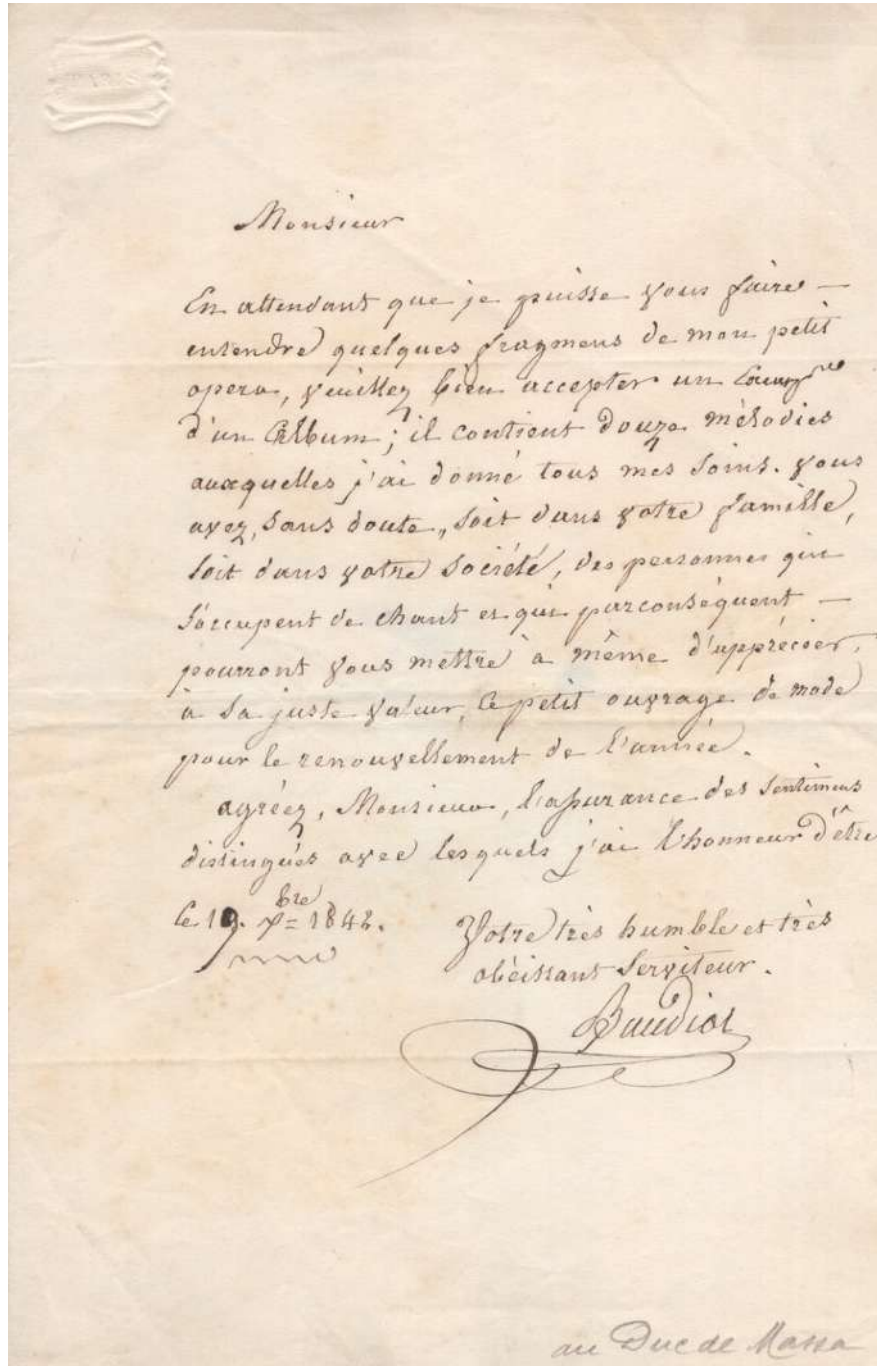 Monsieur
En attendant que je puisse vous faire —
entendre quelques fragmens de mon petit
opera, veuillez bien accepter un
d'un Album; il contient douze mélodies
auxquelles j'ai donné tous mes soins. vous
avez, sans doute, soit dans votre famille,
soit dans votre société, des personnes qui
s'occupent de chant et qui parconséquent —
pourront vous mettre à même d'apprécier,
à sa juste valeur, ce petit ouvrage de mode
pour le renouvellement de l'année.
agréez, Monsieur, l'assurance des sentimens
distingués avec lesquels j'ai l'honneur d'être
le 19. Xbre 1842.
Votre très humble et très
obéissant serviteur.
Baudiot
au Duc de Massa